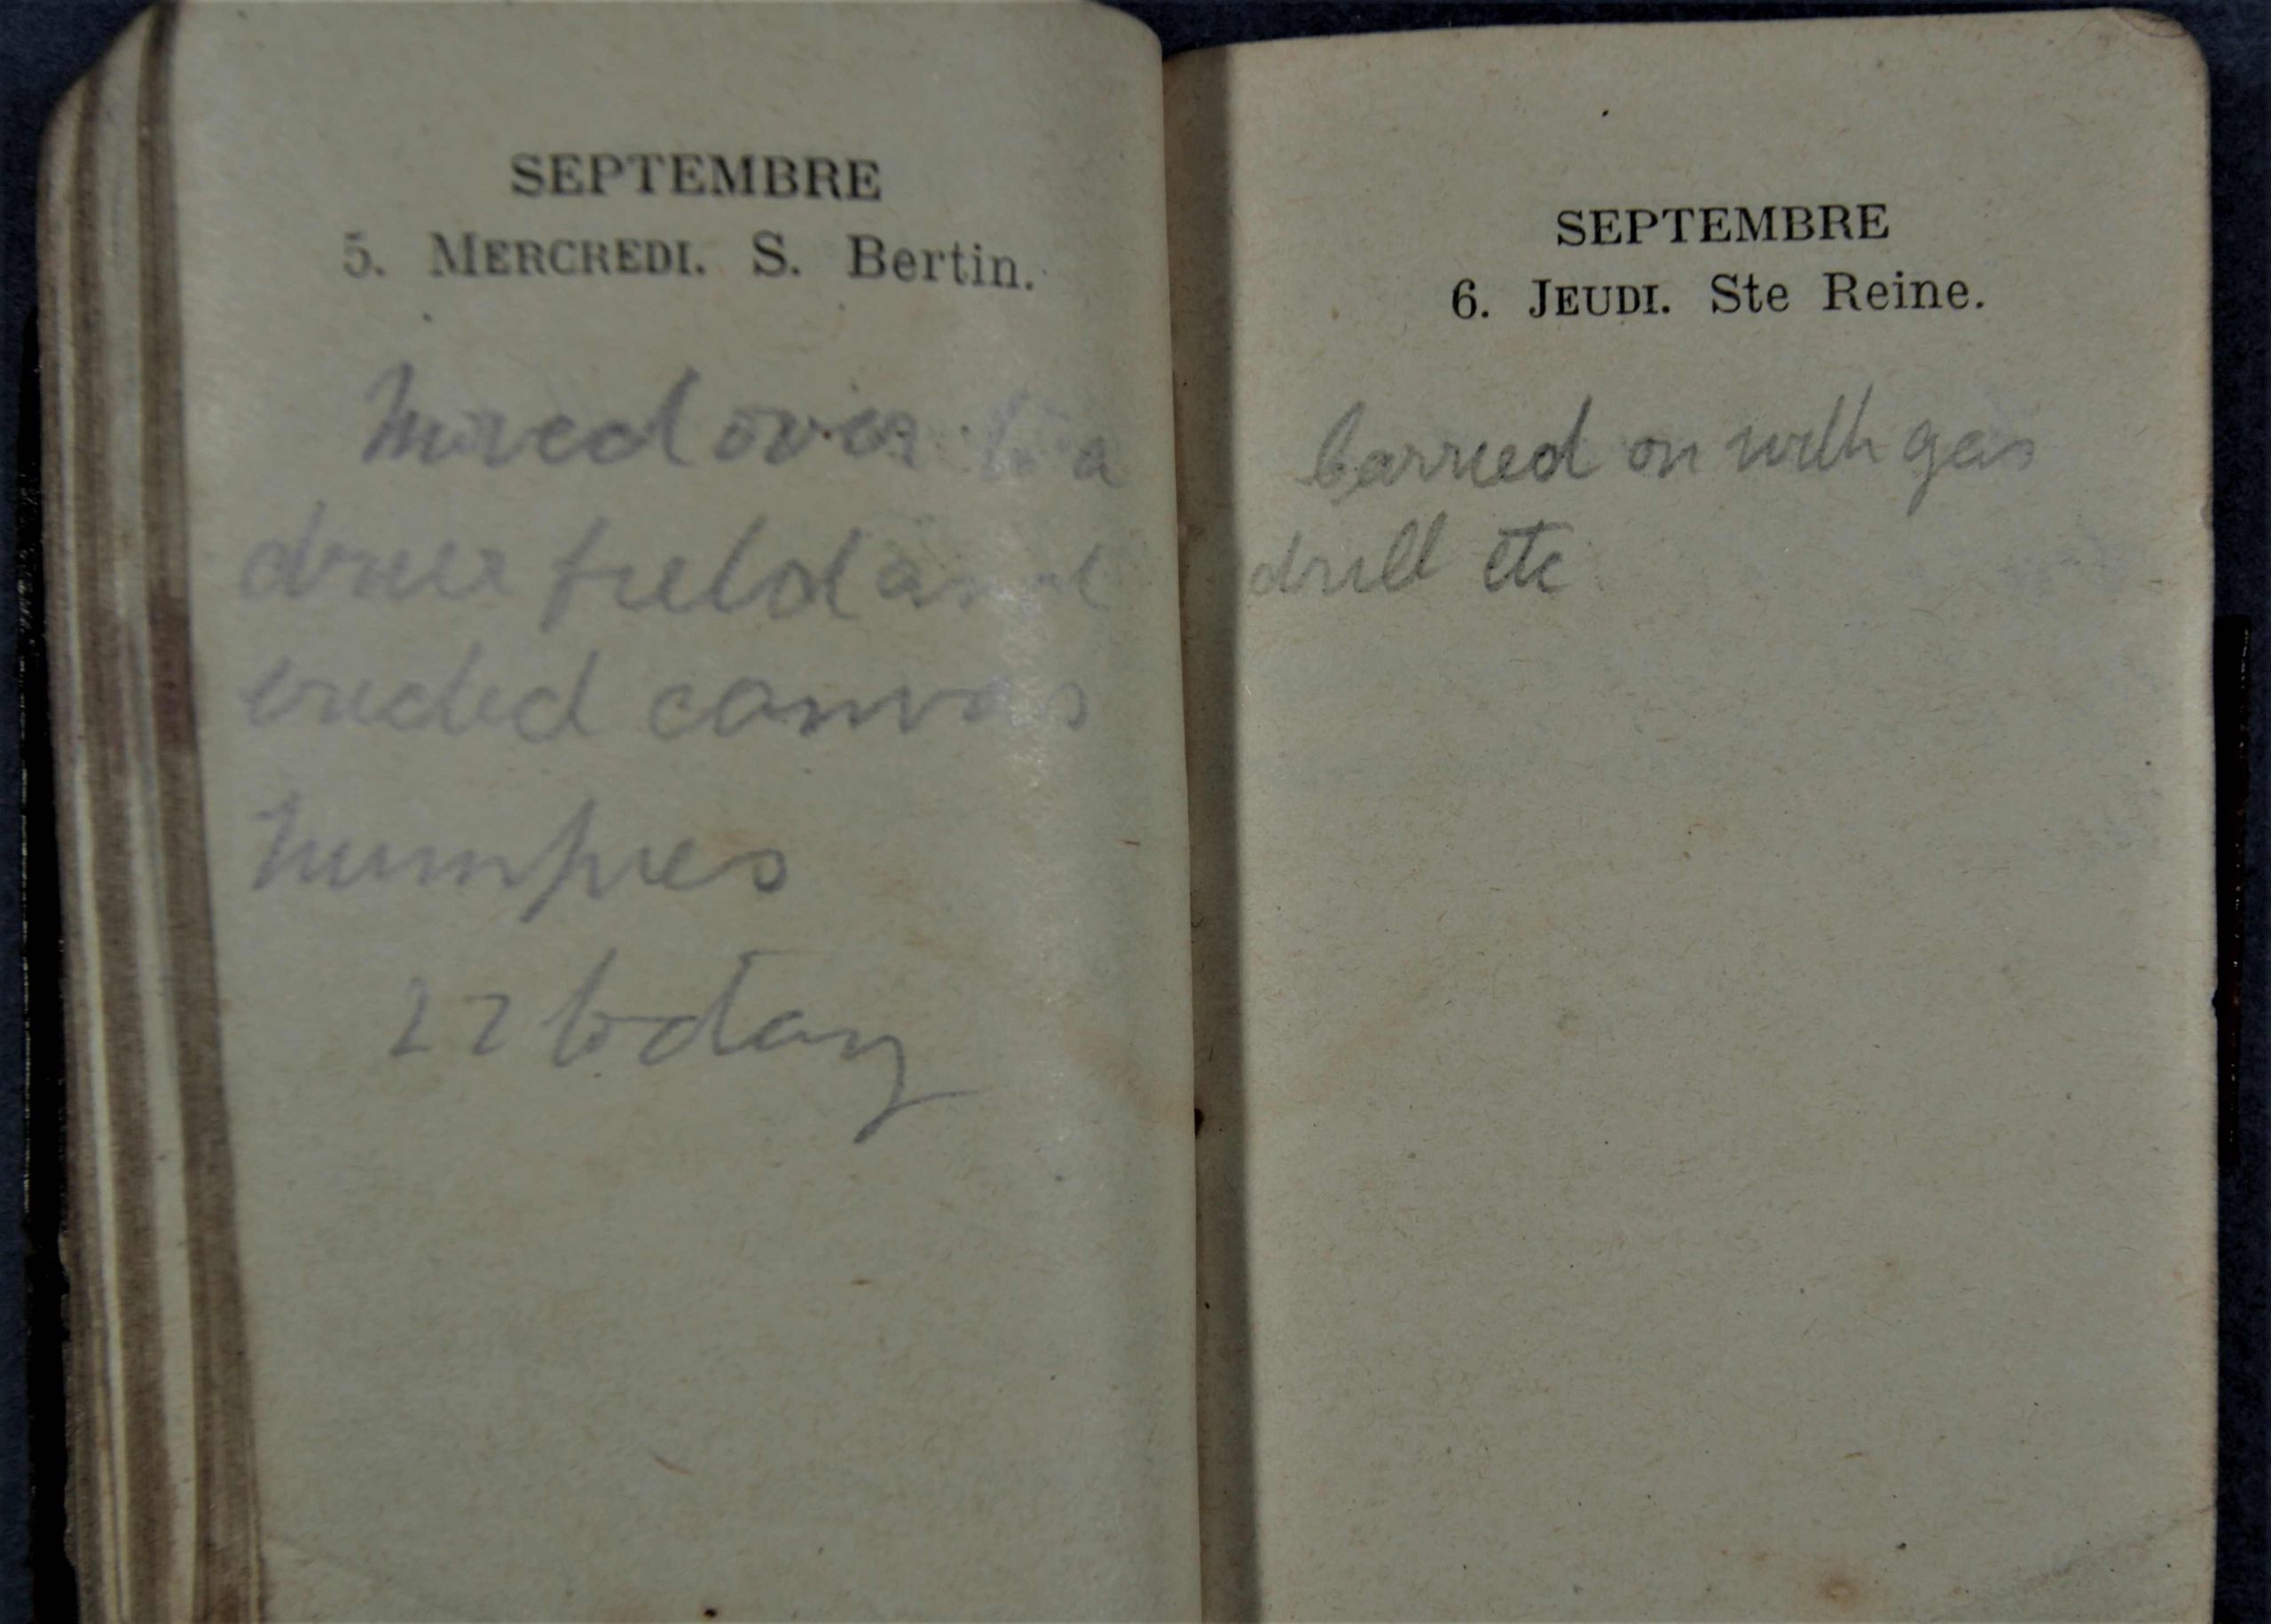 SEPTEMBRE
5. MERCREDI. S. Bertin.
Moved over to a
drier field and
erected canvas
humpies
22 today
SEPTEMBRE
6. JEUDI. Ste Reine.
Carried on with gas
drill etc